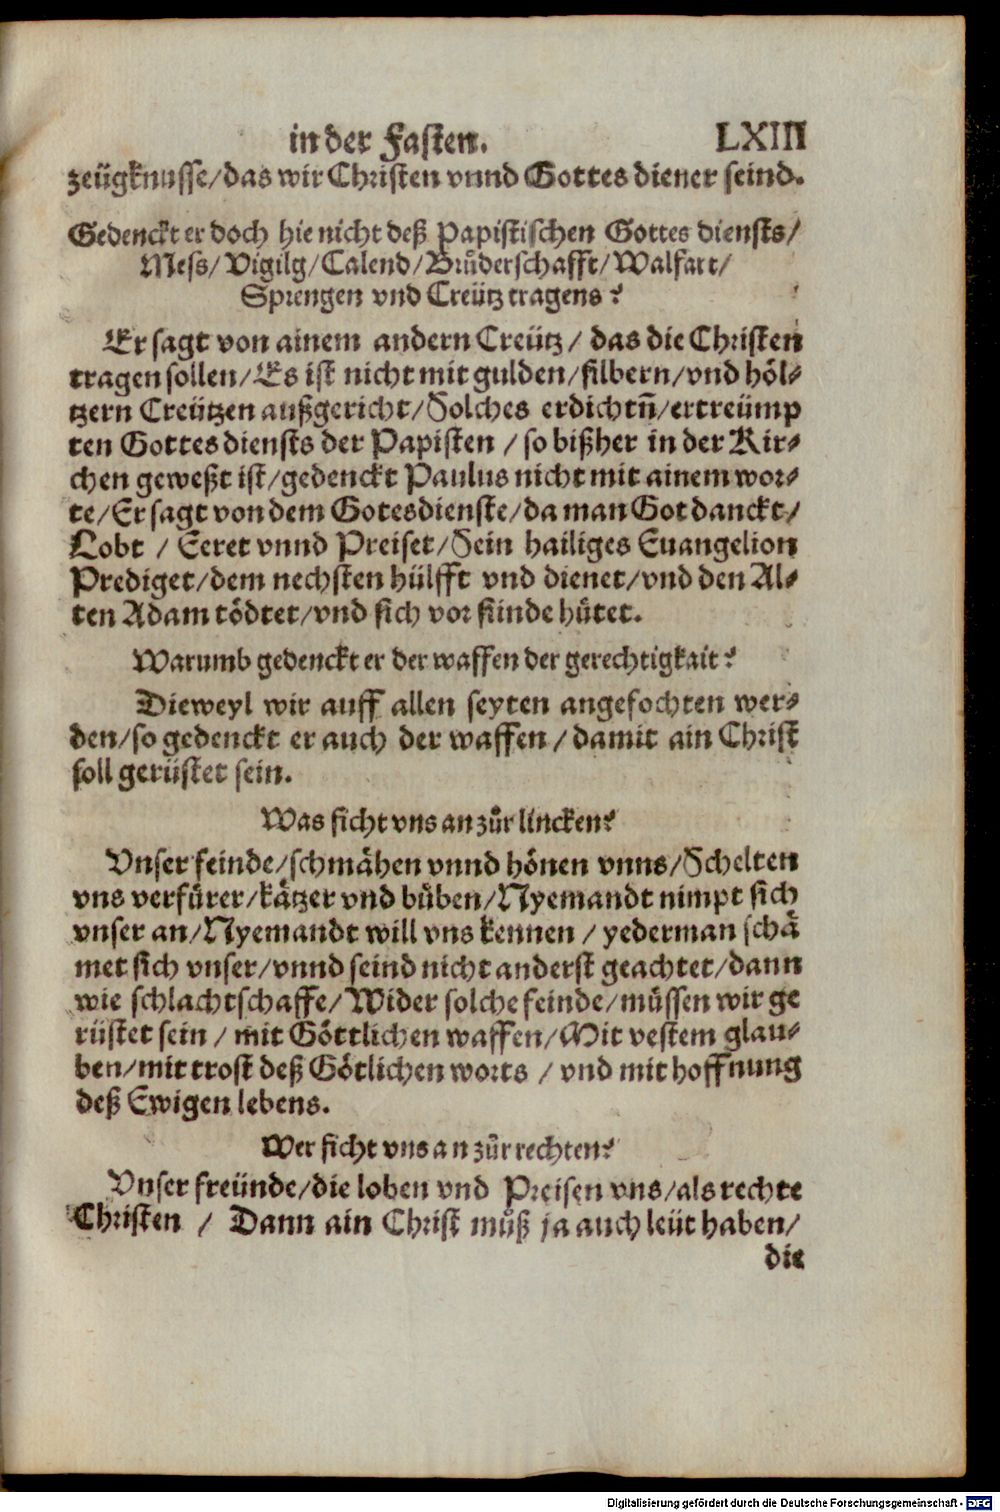 in der Fasten. LXIII
zeügknusse/das wir Christen vnnd Gottes diener seind.
Gedenckt er doch hie nicht deß Papistischen Gottes diensts/
Mess/Vigilg/Calend/Brůderschafft/Walfart/
Sprengen vnd Creütz tragens?
Er sagt von ainem andern Creütz/ das die Christen
tragen sollen/Es ist nicht mit gulden/silbern/vnd höl⸗
tzern Creützen außgericht/Solches erdichtñ/ertreümp
ten Gottes diensts der Papisten /so bißher in der Kir⸗
chen geweßt ist/gedenckt Paulus nicht mit ainem wor⸗
te/Er sagt von dem Gotesdienste/da man Got danckt/
Lobt / Eeret vnnd Preiset/Sein hailiges Euangelion
Prediget/dem nechsten hülfft vnd dienet/vnd den Al⸗
ten Adam tödtet/vnd sich vor sünde hütet.
Warumb gedenckt er der waffen der gerechtigkait?
Dieweyl wir auff allen seyten angefochten wer⸗
den/so gedenckt er auch der waffen /damit ain Christ
soll gerüstet sein.
Was ficht vns an zůr lincken?
Vnser feinde/schmåhen vnnd hönen vnns/Schelten
vns verfürer/kåtzer vnd bůben/Nyemandt nimpt sich
vnser an/Nyemandt will vns kennen / yederman schå
met sich vnser/vnnd seind nicht anderst geachtet/dann
wie schlachtschaffe/Wider solche feinde/müssen wir ge
rüstet sein / mit Göttlichen waffen/Mit vestem glau⸗
ben/mit trost deß Götlichen worts / vnd mit hoffnung
deß Ewigen lebens.
Wer ficht vns an zůr rechten?
Vnser freünde/die loben vnd Preisen vns/als rechte
Christen / Dann ain Christ můß ja auch leüt haben/
die
Digitalisierung gefördert durch die Deutsche Forschungsgemeinschaft - DFG